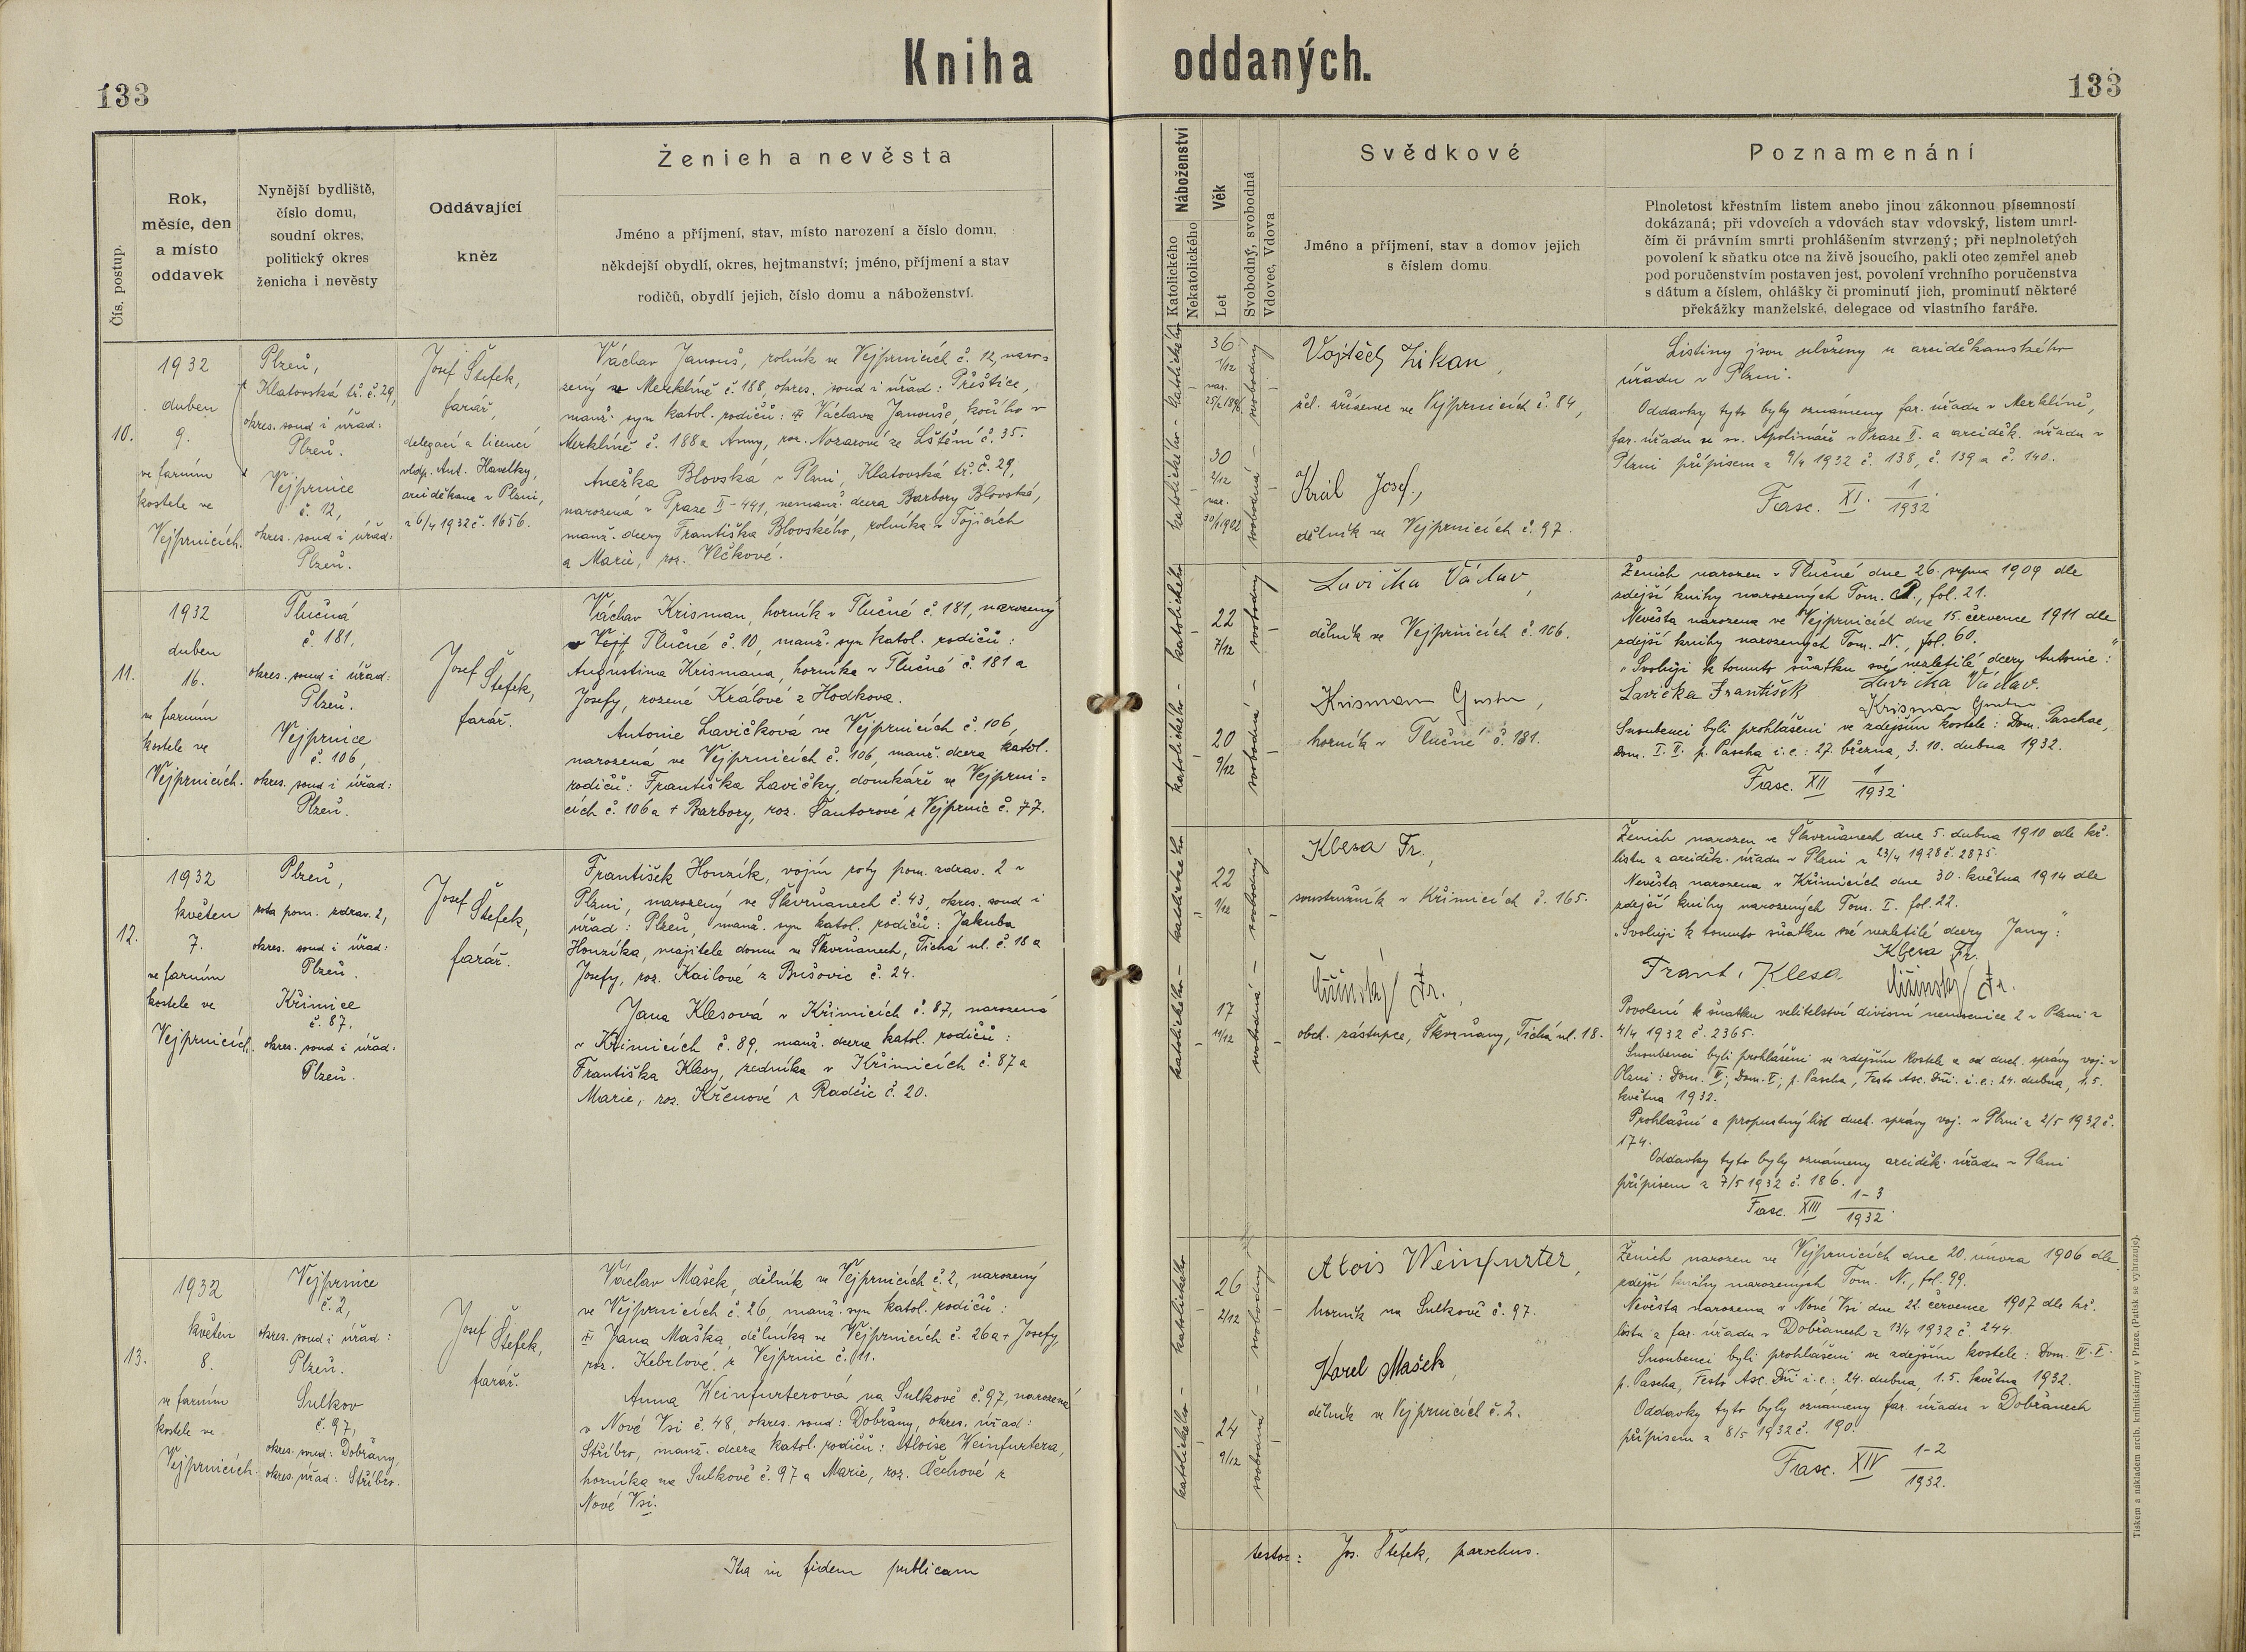 Kniha oddaných.
133
133
Čís. postup.
Rok,
měsíc, den
a místo
oddavek
Nynější bydliště,
číslo domu,
soudní okres,
politický okres
ženicha i nevěsty
Oddávající
kněz
Ženich a nevěsta
Jméno a příjmení, stav, místo narození a číslo domu,
někdejší obydlí, okres, hejtmanství; jméno, příjmení a stav
rodičů, obydlí jejich, číslo domu a náboženství.
Náboženství
Katolického
Nekatolického
Věk
Let
Svobodný, svobodná
Vdovec, Vdova
Svědkové
Jméno a příjmení, stav a domov jejich
s číslem domu
Poznamenání
Plnoletost křestním listem anebo jinou zákonnou písemností
dokázaná; při vdovcích a vdovách stav vdovský, listem umrl-
čím či právním smrti prohlášením stvrzený; při neplnoletých
povolení k sňatku otce na živě jsoucího, pakli otec zemřel aneb
pod poručenstvím postaven jest, povolení vrchního poručenstva
s dátum a číslem, ohlášky či prominutí jich, prominutí některé
překážky manželské, delegace od vlastního faráře.
10.
1932
duben
9.
ve farním
kostele ve
Vejprnicích.
Plzeň,
Klatovská tř. č. 29,
okres. soud i úřad:
Plzeň.
Vejprnice
č. 12,
okres. soud i úřad:
Plzeň.
Josef Štefek,
farář,
delegací a licencí
vldp. Ant. Havelky,
arciděkana v Plzni,
z 6/4 1932 č. 1656.
Václav Janouš, rolník ve Vejprnicích č. 12, naro-
zený v Merklíně č. 188, okres. soud i úřad: Přeštice,
manž. syn katol. rodičů: Václava Janouše, kočího v
Merklíně č. 188 a Anny, roz. Nozarové ze Lštění č. 35.
Anežka Blovská v Plzni, Klatovská tř. č. 29,
narozená v Praze II-441, nemanž. dcera Barbory Blovské,
manž. dcery Františka Blovského, rolníka v Tojicích
a Marie, roz. Vlčkové.
katolického - katolického
36
1/12
nar.
25/2 1896
30
2/12
nar.
30/1 1902
svobodná - svobodný
Vojtěch Zikan,
žel. zřízenec ve Vejprnicích č. 84,
Král Josef,
dělník ve Vejprnicích č. 97.
Listiny jsou uloženy u arciděkanského
úřadu v Plzni.
Oddavky tyto byly oznámeny far. úřadu v Merklíně,
far. úřadu u sv. Apolináře v Praze II. a arciděk. úřadu v
Plzni přípisem z 9/4 1932 č. 138, č. 139 a č. 140.
Fasc. XI. 1/1932.
11.
1932
duben
16.
ve farním
kostele ve
Vejprnicích.
Tlučná
č. 181,
okres. soud i úřad:
Plzeň.
Vejprnice
č. 106,
okres. soud i úřad:
Plzeň.
Josef Štefek,
farář.
Václav Krisman, horník v Tlučné č. 181, narozený
v Tlučné č. 10, manž. syn katol. rodičů:
Augustina Krismana, horníka v Tlučné č. 181 a
Josefy, rozené Králové z Hodkova.
Antonie Lavičková ve Vejprnicích č. 106,
narozená ve Vejprnicích č. 106, manž. dcera katol.
rodičů: Františka Lavičky, domkáře ve Vejprni-
cích č. 106 a + Barbory, roz. Šantorové z Vejprnic č. 77.
katolického - katolického
22
7/12
20
9/12
svobodná - svobodný
Lavička Václav,
dělník ve Vejprnicích č. 106.
Krisman Gustav,
horník v Tlučné č. 181.
Ženich narozen v Tlučné dne 26. srpna 1909 dle
zdejší knihy narozených Tom. , fol. 21.
Nevěsta narozena ve Vejprnicích dne 15. července 1911 dle
zdejší knihy narozených Tom. N., fol. 60.
"Svoluji k tomuto sňatku své nezletilé dcery Antonie:"
Lavička František Lavička Václav.
Krisman Gustav
Snoubenci byli prohlášeni ve zdejším kostele: Dom. Paschae,
Dom. I. II. p. Pascha i.e.: 27. března, 3. 10. dubna 1932.
Fasc. XII 1/1932.
12.
1932
květen
7.
ve farním
kostele ve
Vejprnicích.
Plzeň,
rota pom. zdrav. 2,
okres. soud i úřad:
Plzeň.
Křimice
č. 87,
okres. soud i úřad:
Plzeň.
Josef Štefek,
farář.
František Honzík, vojín roty pom. zdrav. 2 v
Plzni, narozený ve Škvrňanech č. 43, okres. soud i
úřad: Plzeň, manž. syn katol. rodičů: Jakuba
Honzíka, majitele domu ve Škvrňanech, Tichá ul. č. 18 a
Josefy, roz. Kailové z Bušovic č. 24.
Jana Klesová v Křimicích č. 87, narozená
v Křimicích č. 89, manž. dcera katol. rodičů:
Františka Klesy, zedníka v Křimicích č. 87 a
Marie, roz. Křenové z Radčic č. 20.
katolického - katolického
22
1/12
17
11/12
svobodná - svobodný
Klesa Fr.,
soustružník v Křimicích č. 165.
Fr.,
obch. zástupce, Škvrňany, Tichá ul. 18.
Ženich narozen ve Škvrňanech dne 5. dubna 1910 dle kř.
listu z arciděk. úřadu v Plzni z 23/4 1928 č. 2875.
Nevěsta narozena v Křimicích dne 30. května 1914 dle
zdejší knihy narozených Tom. I. fol. 22.
"Svoluji k tomuto sňatku své nezletilé dcery Jany:"
Klesa Fr.
Frant. Klesa Fr.
Povolení k sňatku velitelství divisní nemocnice 2 v Plzni z
4/4 1932 č. 2365.
Snoubenci byli prohlášeni ve zdejším kostele a od duch. správy voj. v
Plzni: Dom. IV., Dom. V., p. Pascha, Festo Asc. Dñi. i.e.: 24. dubna, 1. 5.
května 1932.
Prohlášní a propustný list duch. správy voj. v Plzni z 2/5 1932 č.
174.
Oddavky tyto byly oznámeny arciděk. úřadu v Plzni
přípisem z 7/5 1932 č. 186.
Fasc. XIII 1-3/1932.
13.
1932
květen
8.
ve farním
kostele ve
Vejprnicích.
Vejprnice
č. 2,
okres. soud i úřad:
Plzeň.
Sulkov
č. 97,
okres. soud: Dobřany,
okres. úřad: Stříbro.
Josef Štefek,
farář.
Václav Mašek, dělník ve Vejprnicích č. 2, narozený
ve Vejprnicích č. 26, manž. syn katol. rodičů:
Jana Maška, dělníka ve Vejprnicích č. 26 a + Josefy,
roz. Kebrlové z Vejprnic č. 11.
Anna Weinfurterová na Sulkově č. 97, narozená
v Nové Vsi č. 48, okres. soud: Dobřany, okres. úřad:
Stříbro, manž. dcera katol. rodičů: Aloise Weinfurtera,
horníka na Sulkově č. 97 a Marie, roz. Čechové z
Nové Vsi.
katolického - katolického
26
2/12
24
9/12
svobodná - svobodný
Alois Weinfurter,
horník na Sulkově č. 97.
Karel Mašek,
dělník ve Vejprnicích č. 2.
Ženich narozen ve Vejprnicích dne 20. února 1906 dle
zdejší knihy narozených Tom. N., fol. 99.
Nevěsta narozena v Nové Vsi dne 22. července 1907 dle kř.
listu z far. úřadu v Dobřanech z 13/4 1932 č. 244.
Snoubenci byli prohlášeni ve zdejším kostele: Dom. IV. V.
p. Pascha, Festo Asc. Dñi i.e.: 24. dubna, 1. 5. května 1932.
Oddavky tyto byly oznámeny far. úřadu v Dobřanech
přípisem z 8/5 1932 č. 190.
Fasc. XIV 1-2/1932.
Ita in fidem publicam
testor: Jos. Štefek, parochus.
Tiskem a nákladem arcib. knihtiskárny v Praze. (Patisk se vyhrazuje).